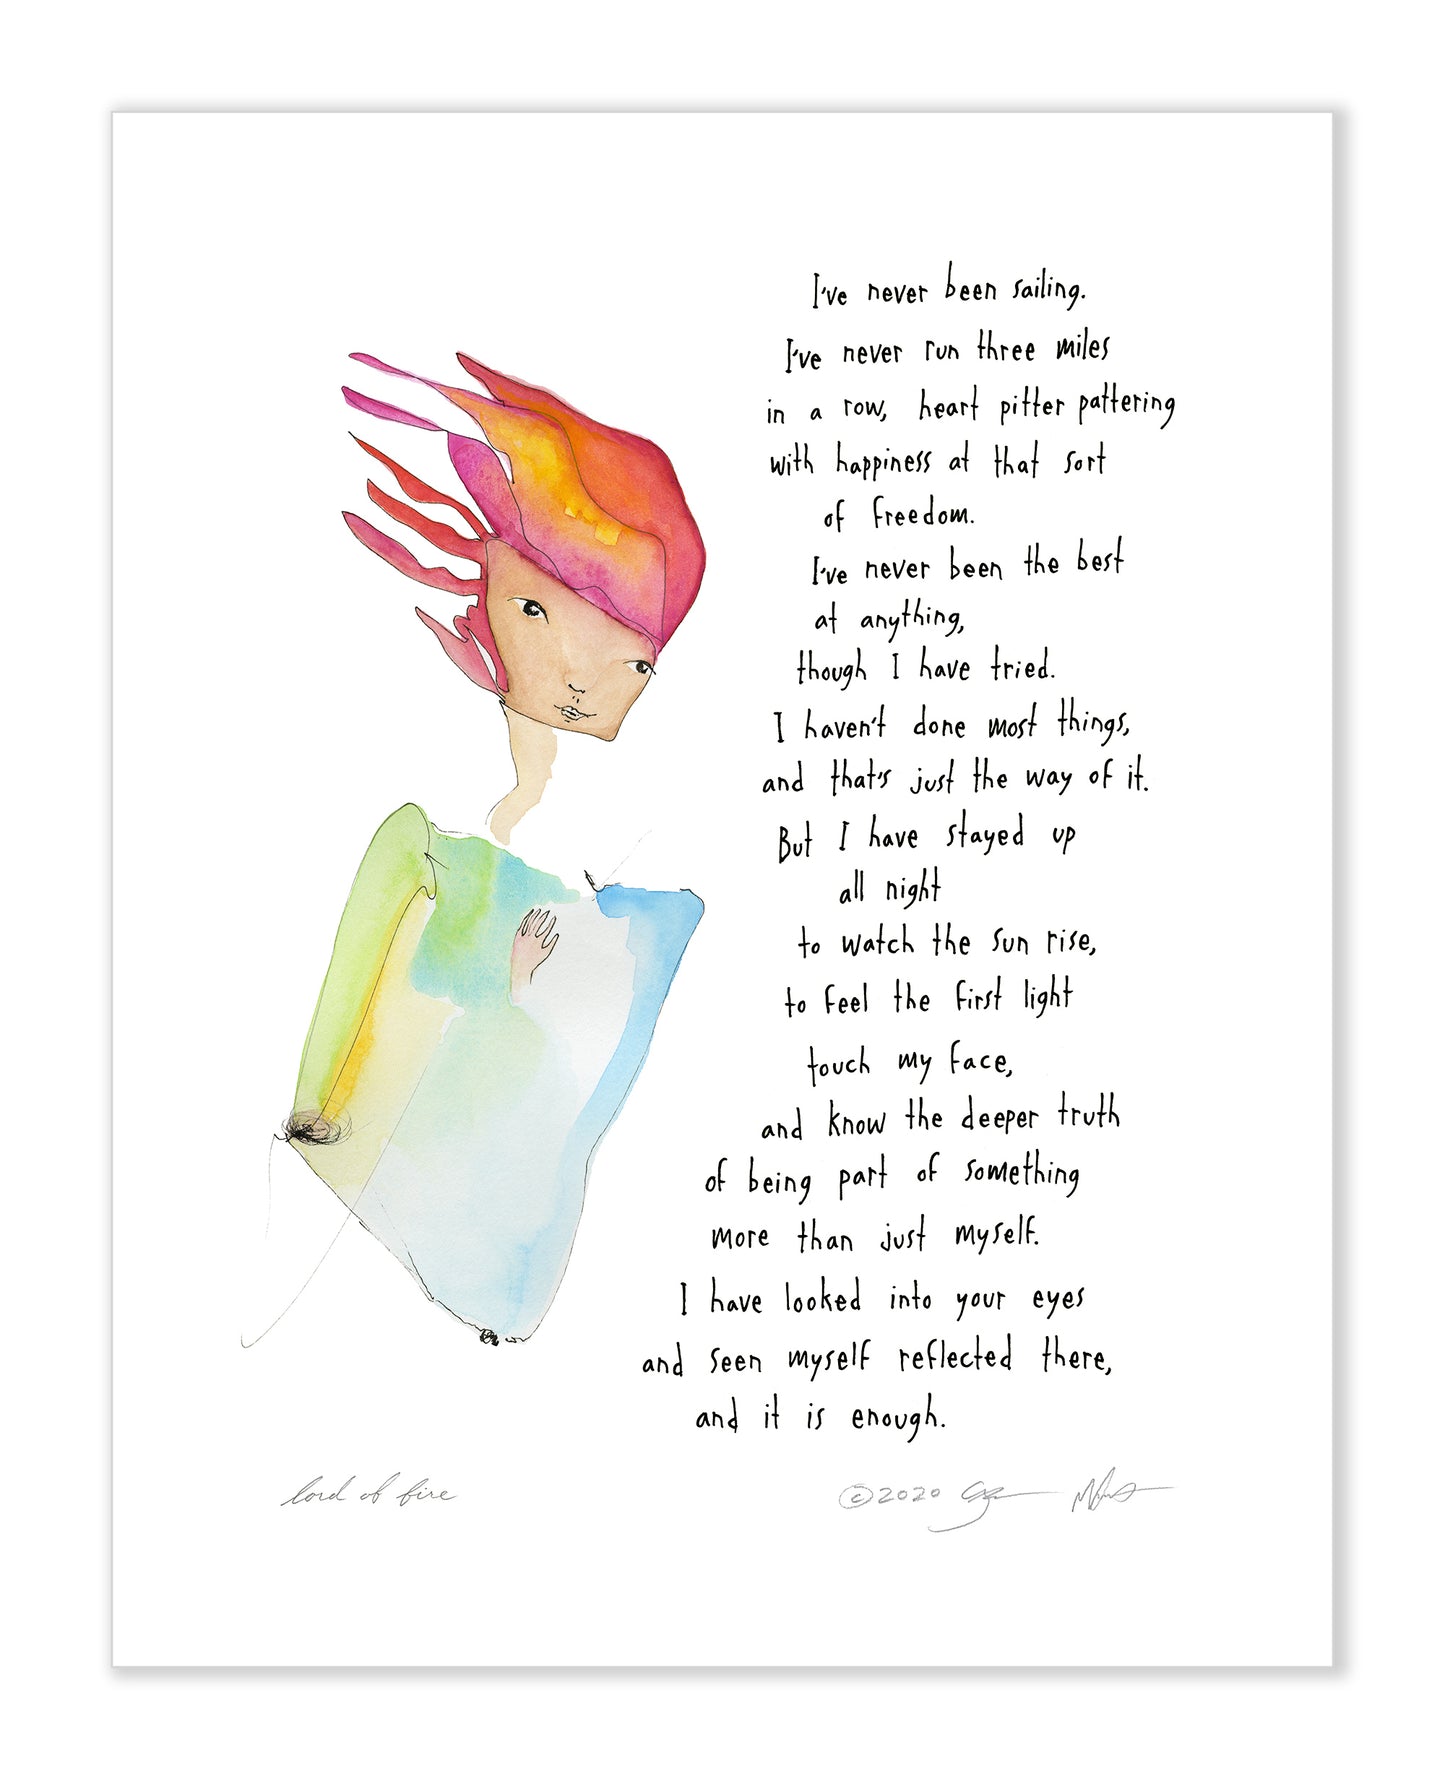 I've never been sailing.
I've never run three miles
in a row, heart pitter pattering
with happiness at that sort
of freedom.
I've never been the best
at anything,
though I have tried.
I haven't done most things,
and that's just the way of it.
But I have stayed up
all night
to watch the sun rise,
to feel the first light
touch my face,
and know the deeper truth
of being part of something
more than just myself.
I have looked into your eyes
and seen myself reflected there,
and it is enough.
lord of fire
©2020